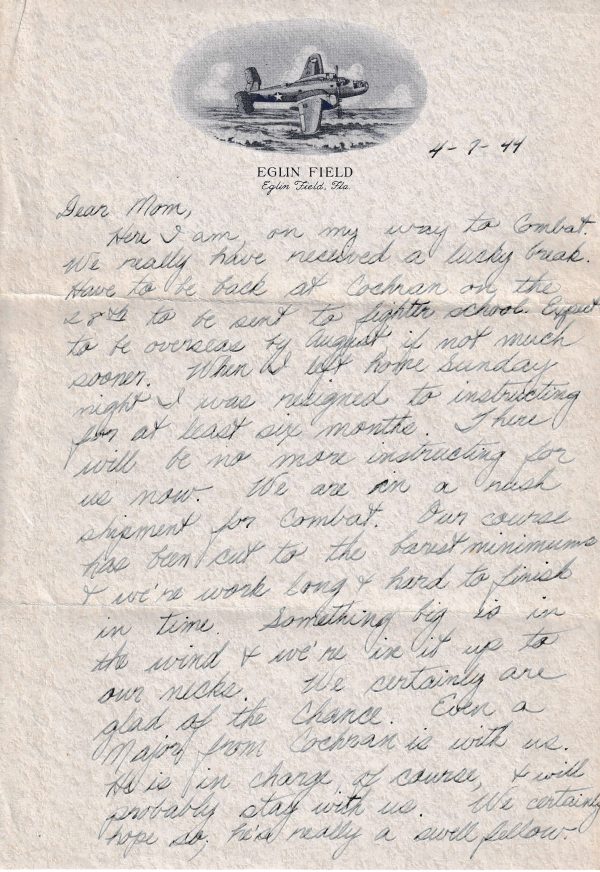 EGLIN FIELD
Eglin Field, Fla.
4-7-44
Dear Mom,
Here I am, on my way to Combat.
We really have received a lucky break.
Have to be back at Cochran on the
28th to be sent to fighter school. Expect
to be overseas by August if not much
sooner. When I left home Sunday
night I was resigned to instructing
for at least six months. There
will be no more instructing for
us now. We are in a rush
shipment for Combat. Our course
has been cut to the barest minimums
& we're work long & hard to finish
in time. Something big is in
the wind & we're in it up to
our necks. We certainly are
glad of the Chance. Even a
Major from Cochran is with us.
He is in charge of course, & will
probably stay with us. We certainly
hope so, he's really a swell fellow.